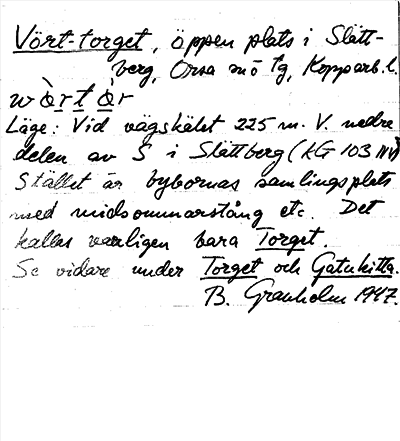 Vört-torget, öppen plats i Slätt-
berg, Orsa sn o tg, Kopparb. l.
wòrtòr
Läge: Vid vägskälet 225 m. V. nedre
delen av S i Slättberg (KG 103 NV)
Stället är bybornas samlingsplats
med midsommarstång etc. Det
kallas vanligen bara Torget.
Se vidare under Torget och Gatukitta.
B. Granholm 1947.